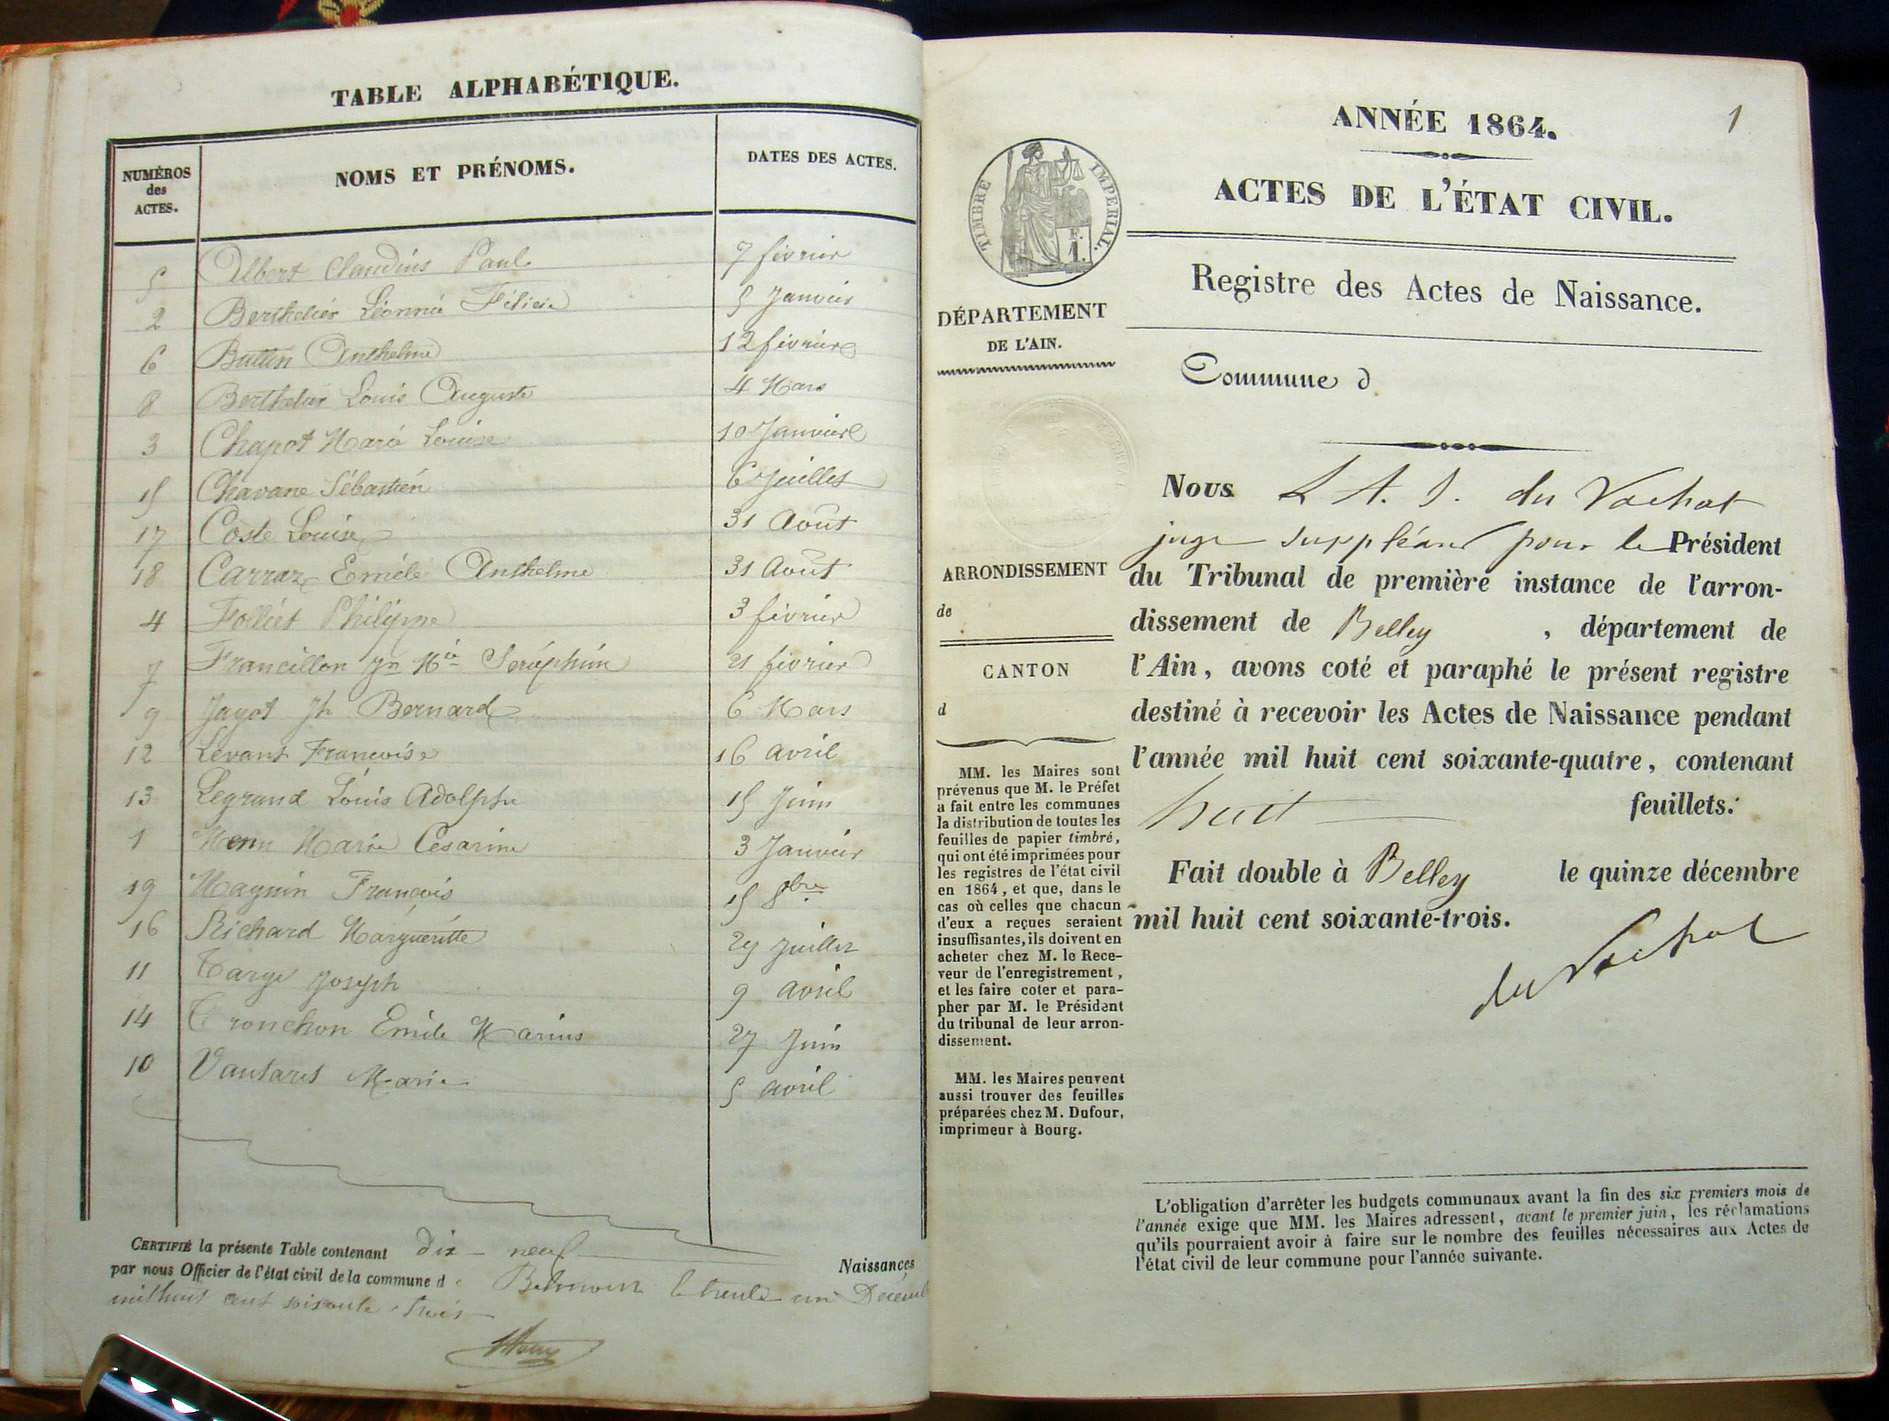 TABLE ALPHABÉTIQUE.
NUMÉROS des ACTES. NOMS ET PRÉNOMS. DATES DES ACTES.
5 Albert Claudius Paul 7 février
2 Berthelier Léonnie Félicie 5 Janvier
6 Buttin Anthelme 12 février
8 Berthelier Louis Auguste 4 Mars
3 Chapot Marie Louise 10 Janvier
15 Chavane Sébastien 6 Juillet
17 Coste Louise 31 Août
18 Carraz Emile Anthelme 31 Août
4 Folliet Philippe 3 février
7 Francillon Jn Mie Séraphin 21 février
9 Jayot Jh Bernard 6 Mars
12 Levant Françoise 16 avril
13 Legrand Louis Adolphe 15 Juin
1 Marie Césarine 3 Janvier
19 Magnin François 15 8bre
16 Richard Margueritte 29 Juillet
11 Targe Joseph 9 avril
14 Tronchon Emile Marius 27 Juin
10 Marie 5 avril
CERTIFIÉ la présente Table contenant dix-neuf Naissances
par nous Officier de l'état civil de la commune de le trente un Décembre
mil huit cent soixante trois
ANNÉE 1864.
1
ACTES DE L'ÉTAT CIVIL.
TIMBRE IMPÉRIAL.
1.
Registre des Actes de Naissance.
DÉPARTEMENT
DE L'AIN.
Commune d
ARRONDISSEMENT
de
CANTON
d
MM. les Maires sont
prévenus que M. le Préfet
a fait entre les communes
la distribution de toutes les
feuilles de papier timbré,
qui ont été imprimées pour
les registres de l'état civil
en 1864, et que, dans le
cas où celles que chacun
d'eux a reçues seraient
insuffisantes, ils doivent en
acheter chez M. le Rece-
veur de l'enregistrement,
et les faire coter et para-
pher par M. le Président
du tribunal de leur arron-
dissement.
MM. les Maires peuvent
aussi trouver des feuilles
préparées chez M. Dufour,
imprimeur à Bourg.
Nous L A. J. du Vachat
juge suppléant pour le Président
du Tribunal de première instance de l'arron-
dissement de Belley, département de
l'Ain, avons coté et paraphé le présent registre
destiné à recevoir les Actes de Naissance pendant
l'année mil huit cent soixante-quatre, contenant
huit feuillets.
Fait double à Belley le quinze décembre
mil huit cent soixante-trois.
du Vachat
L'obligation d'arrêter les budgets communaux avant la fin des six premiers mois de
l'année exige que MM. les Maires adressent, avant le premier juin, les réclamations
qu'ils pourraient avoir à faire sur le nombre des feuilles nécessaires aux Actes de
l'état civil de leur commune pour l'année suivante.